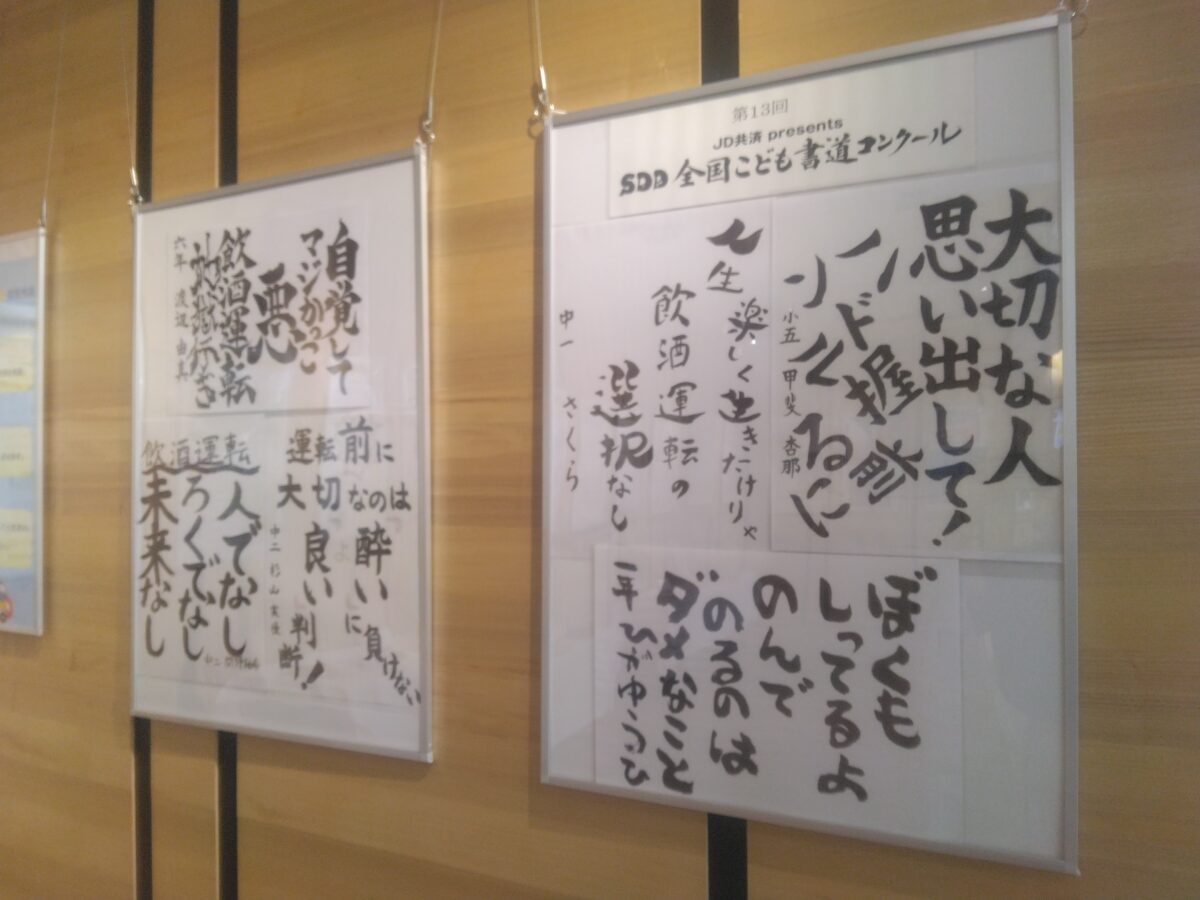 第13回
JD共済 presents
SDD 全国こども書道コンクール
大切な人
思い出して!
ハンドル握る前に
小五 甲斐 杏那
一生
楽しく生きたけりゃ
飲酒運転の
選択なし
中一 さくら
ぼくも
しってるよ
のんで
のるのは
ダメなこと
一年
自覚して
マジかっこ
悪
飲酒運転
六年 渡辺
運転前に
大切なのは
酔いに負けない
良い判断!
中二 杉山
飲酒運転
人でなし
ろくでなし
未来なし
中二